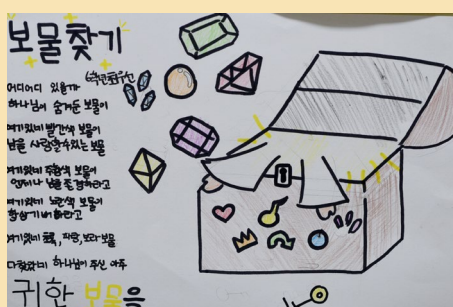 보물찾기
어디어디 있을까
하나님이 숨겨둔 보물이
여기있네 빨간색 보물이
남을 사랑할수있는 보물
여기있네 주황색 보물이
언제나 남을 존경하라고
여기있네 노란색 보물이
항상기뻐하라고
여기있네 초록, 파랑, 보라 보물
다찾았네 하나님이 주신 아주
귀한 보물을